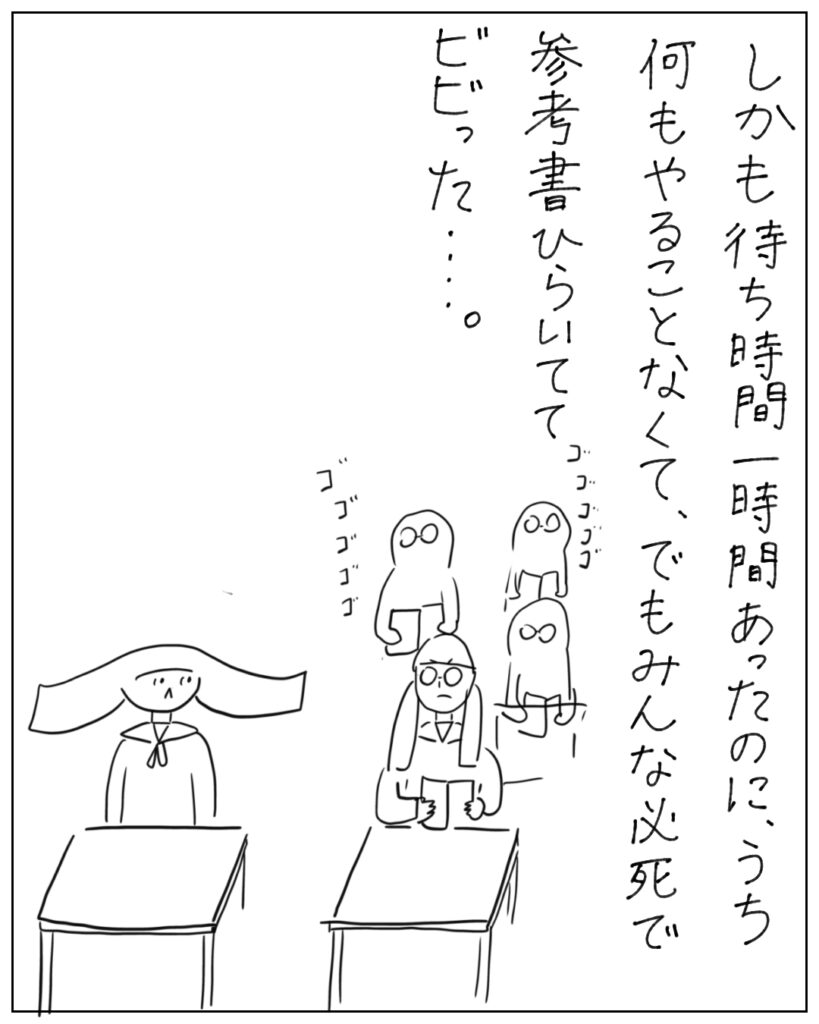 しかも待ち時間一時間あったのに、うち
何もやることなくて、でもみんな必死で
参考書ひらいてて
ビビった・・・・。
ゴゴゴゴゴ
ゴゴゴゴゴ